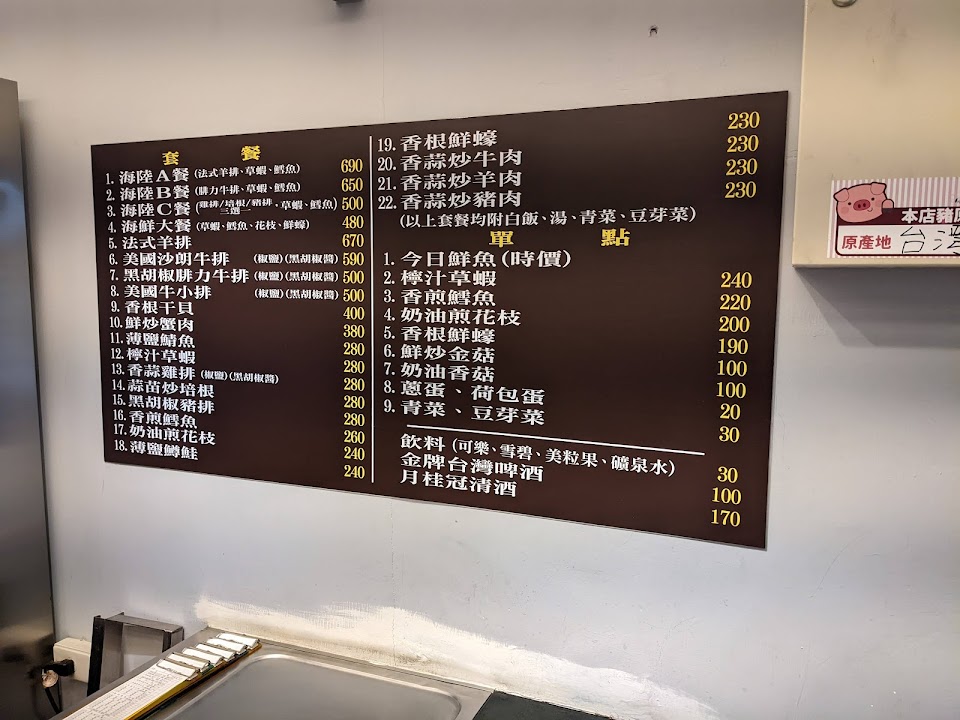 套 餐
1. 海陸A餐 (法式羊排、草蝦、鱈魚) 690
2. 海陸B餐 (腓力牛排、草蝦、鱈魚) 650
3. 海陸C餐 (雞排/培根/豬排 三選一，草蝦、鱈魚) 500
4. 海鮮大餐 (草蝦、鱈魚、花枝、鮮蠔) 480
5. 法式羊排 670
6. 美國沙朗牛排 (椒鹽)(黑胡椒醬) 590
7. 黑胡椒腓力牛排 (椒鹽)(黑胡椒醬) 500
8. 美國牛小排 (椒鹽)(黑胡椒醬) 500
9. 香根干貝 400
10. 鮮炒蟹肉 380
11. 薄鹽鯖魚 280
12. 檸汁草蝦 280
13. 香蒜雞排 (椒鹽)(黑胡椒醬) 280
14. 蒜苗炒培根 280
15. 黑胡椒豬排 280
16. 香煎鱈魚 260
17. 奶油煎花枝 240
18. 薄鹽鱒鮭 240
19. 香根鮮蠔 230
20. 香蒜炒牛肉 230
21. 香蒜炒羊肉 230
22. 香蒜炒豬肉 230
(以上套餐均附白飯、湯、青菜、豆芽菜)
單 點
1. 今日鮮魚(時價)
2. 檸汁草蝦 240
3. 香煎鱈魚 220
4. 奶油煎花枝 200
5. 香根鮮蠔 190
6. 鮮炒金菇 100
7. 奶油香菇 100
8. 蔥蛋、荷包蛋 20
9. 青菜、豆芽菜 30
飲料 (可樂、雪碧、美粒果、礦泉水) 30
金牌台灣啤酒 100
月桂冠清酒 170
本店豬
原產地 台灣